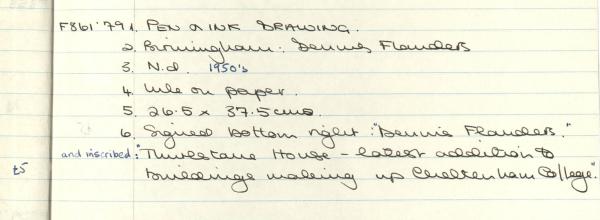 F861'79 1. PEN & INK DRAWING.
2. Birmingham: Dennis Flanders
3. N.d. 1950's
4. Ink on paper.
5. 26.5 x 37.5 cms.
6. Signed bottom right: "Dennis Flanders."
and inscribed: "Thirlestane House – latest addition to
£5 buildings making up Cheltenham College".